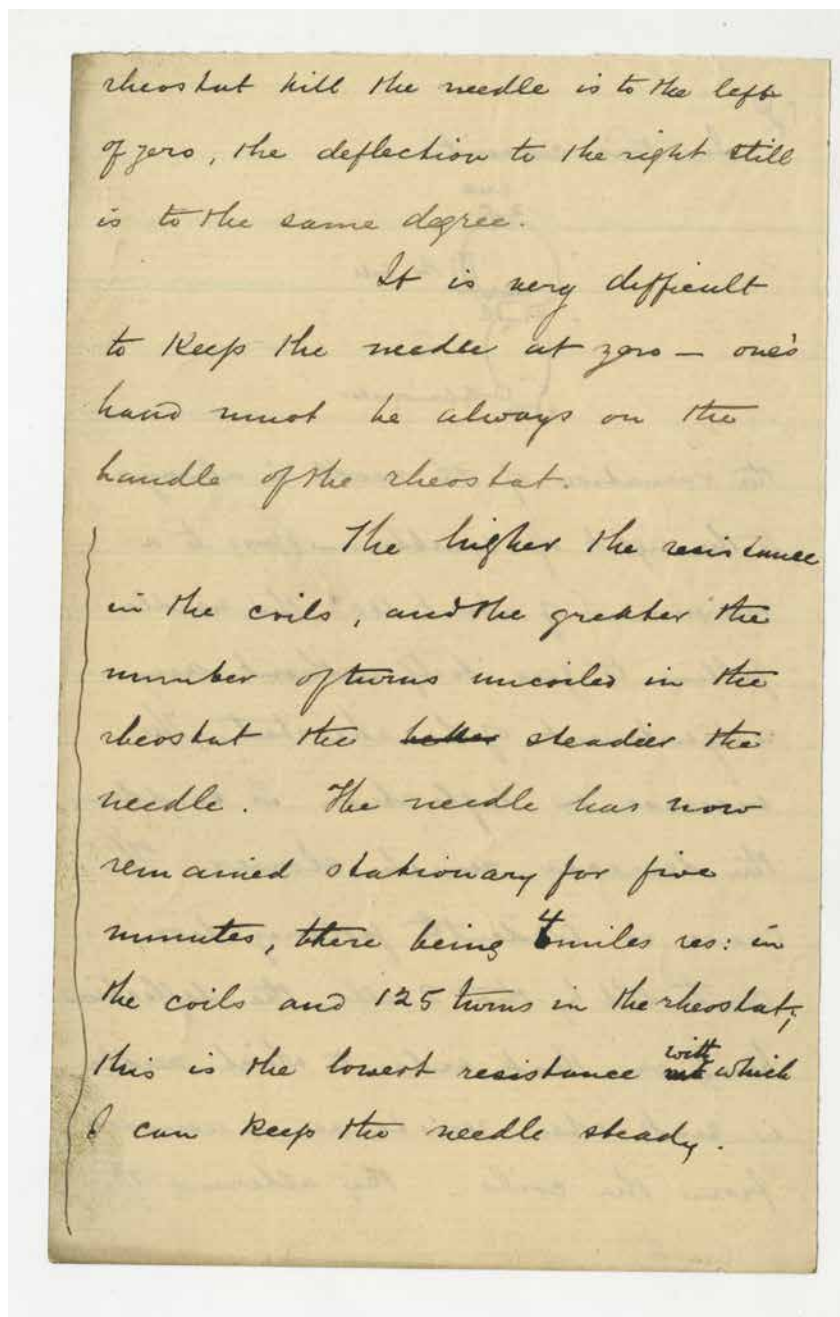 rheostat till the needle is to the left
of zero, the deflection to the right still
is to the same degree.
It is very difficult
to keep the needle at zero — one's
hand must be always on the
handle of the rheostat.
The higher the resistance
in the coils, and the greater the
number of turns uncoiled in the
rheostat the better steadier the
needle. The needle has now
remained stationary for five
minutes, there being 4 miles res: in
the coils and 125 turns in the rheostat;
this is the lowest resistance with which
I can keep the needle steady.